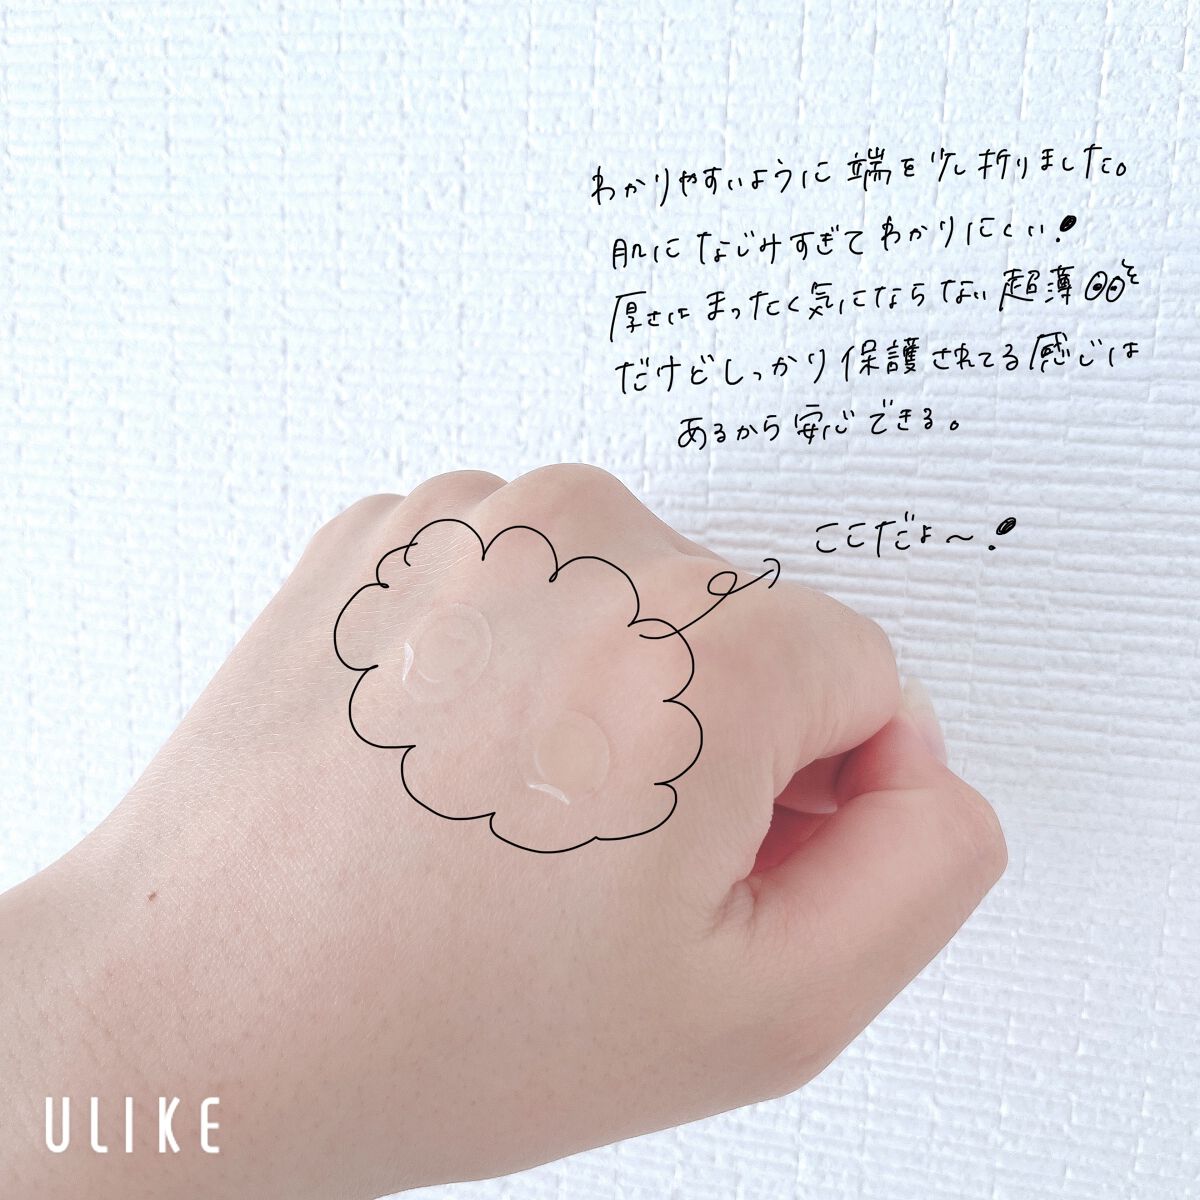 わかりやすいように端を少し折りました。
肌になじみすぎてわかりにくい!
厚さはまったく気にならない超薄
だけどしっかり保護されてる感じは
あるから安心できる。
ここだよ〜!
ULIKE